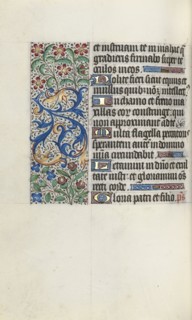 et instruam te in via hac qua
gradieris firmabo super te
oculos meos.
Nolite fieri sicut equus et
mulus quibus non est intellectus
In chamo et freno ma
xillas eor constringe qui
non approximant ad te
Multa flagella peccatoris
sperantem autem in domino
mia circundabit
Letamini in dno et exul
tate iusti et gloriamini os
recti corde.
Gloria patri et filio